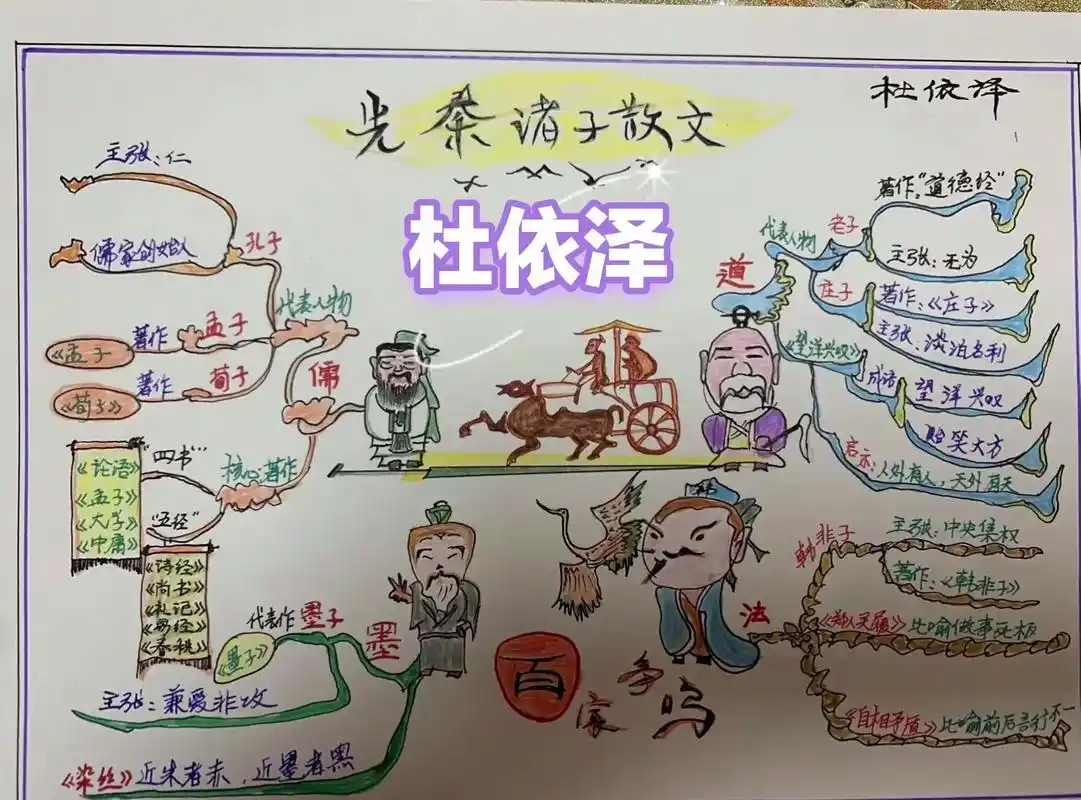 杜依泽
先秦诸子散文
杜依泽
主张：仁
儒家创始人
孔子
代表人物
孟子
著作
《孟子》
荀子
著作
《荀子》
儒
核心著作
"四书"
《论语》
《孟子》
《大学》
《中庸》
"五经"
《诗经》
《尚书》
《礼记》
《易经》
《春秋》
道
代表人物
老子
著作："道德经"
主张：无为
庄子
著作：《庄子》
主张：淡泊名利
《望洋兴叹》
成语
望洋兴叹
贻笑大方
启示：人外有人，天外有天
墨
代表作 墨子
《墨子》
主张：兼爱非攻
《染丝》近朱者赤，近墨者黑
法
韩非子
主张：中央集权
著作：《韩非子》
《郑人买履》比喻做事死板
《自相矛盾》比喻前后言行不一
百
家
争
鸣